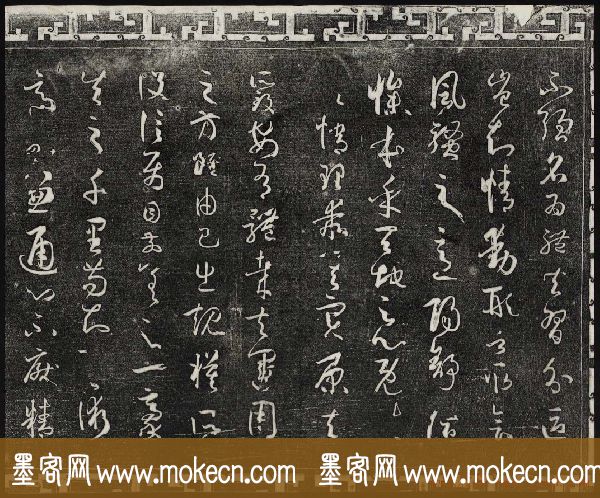 而強名為體共習分區
豈知情動形言取會
風騷之意陽舒陰
慘本乎天地之心既
失其情理乖其實原夫
所致安有體哉夫運用
之方雖由己出規模所
設信屬目前差之一豪
失之千里苟知其術
適可兼通心不厭精
墨客网 www.mokecn.com 墨客网 www.mokecn.com